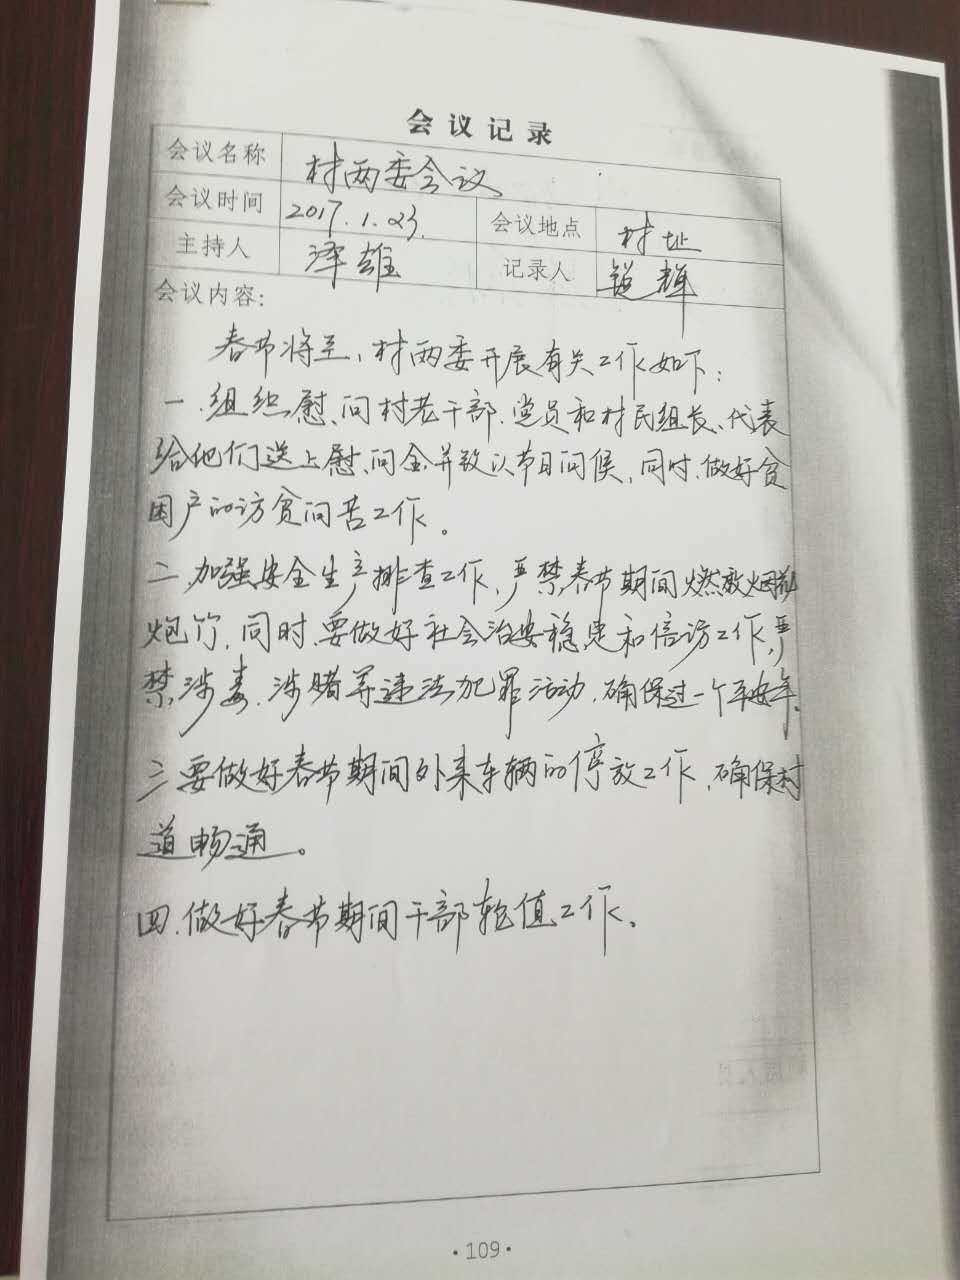 会议记录
会议名称 村两委会议
会议时间 2017.1.23. 会议地点 村址
主持人 泽雄 记录人 辉
会议内容:
春节将至,村两委开展有关工作如下:
一.组织慰问村老干部.党员和村民组长、代表
给他们送上慰问金并致以节日问候,同时.做好贫
困户的访贫问苦工作。
二.加强安全生产排查工作,严禁春节期间燃放烟花
炮竹,同时.要做好社会治安稳定和信访工作,严
禁涉毒.涉赌等违法犯罪活动,确保过一个平安年.
三要做好春节期间外来车辆的停放工作,确保村
道畅通。
四.做好春节期间干部轮值工作.
·109·